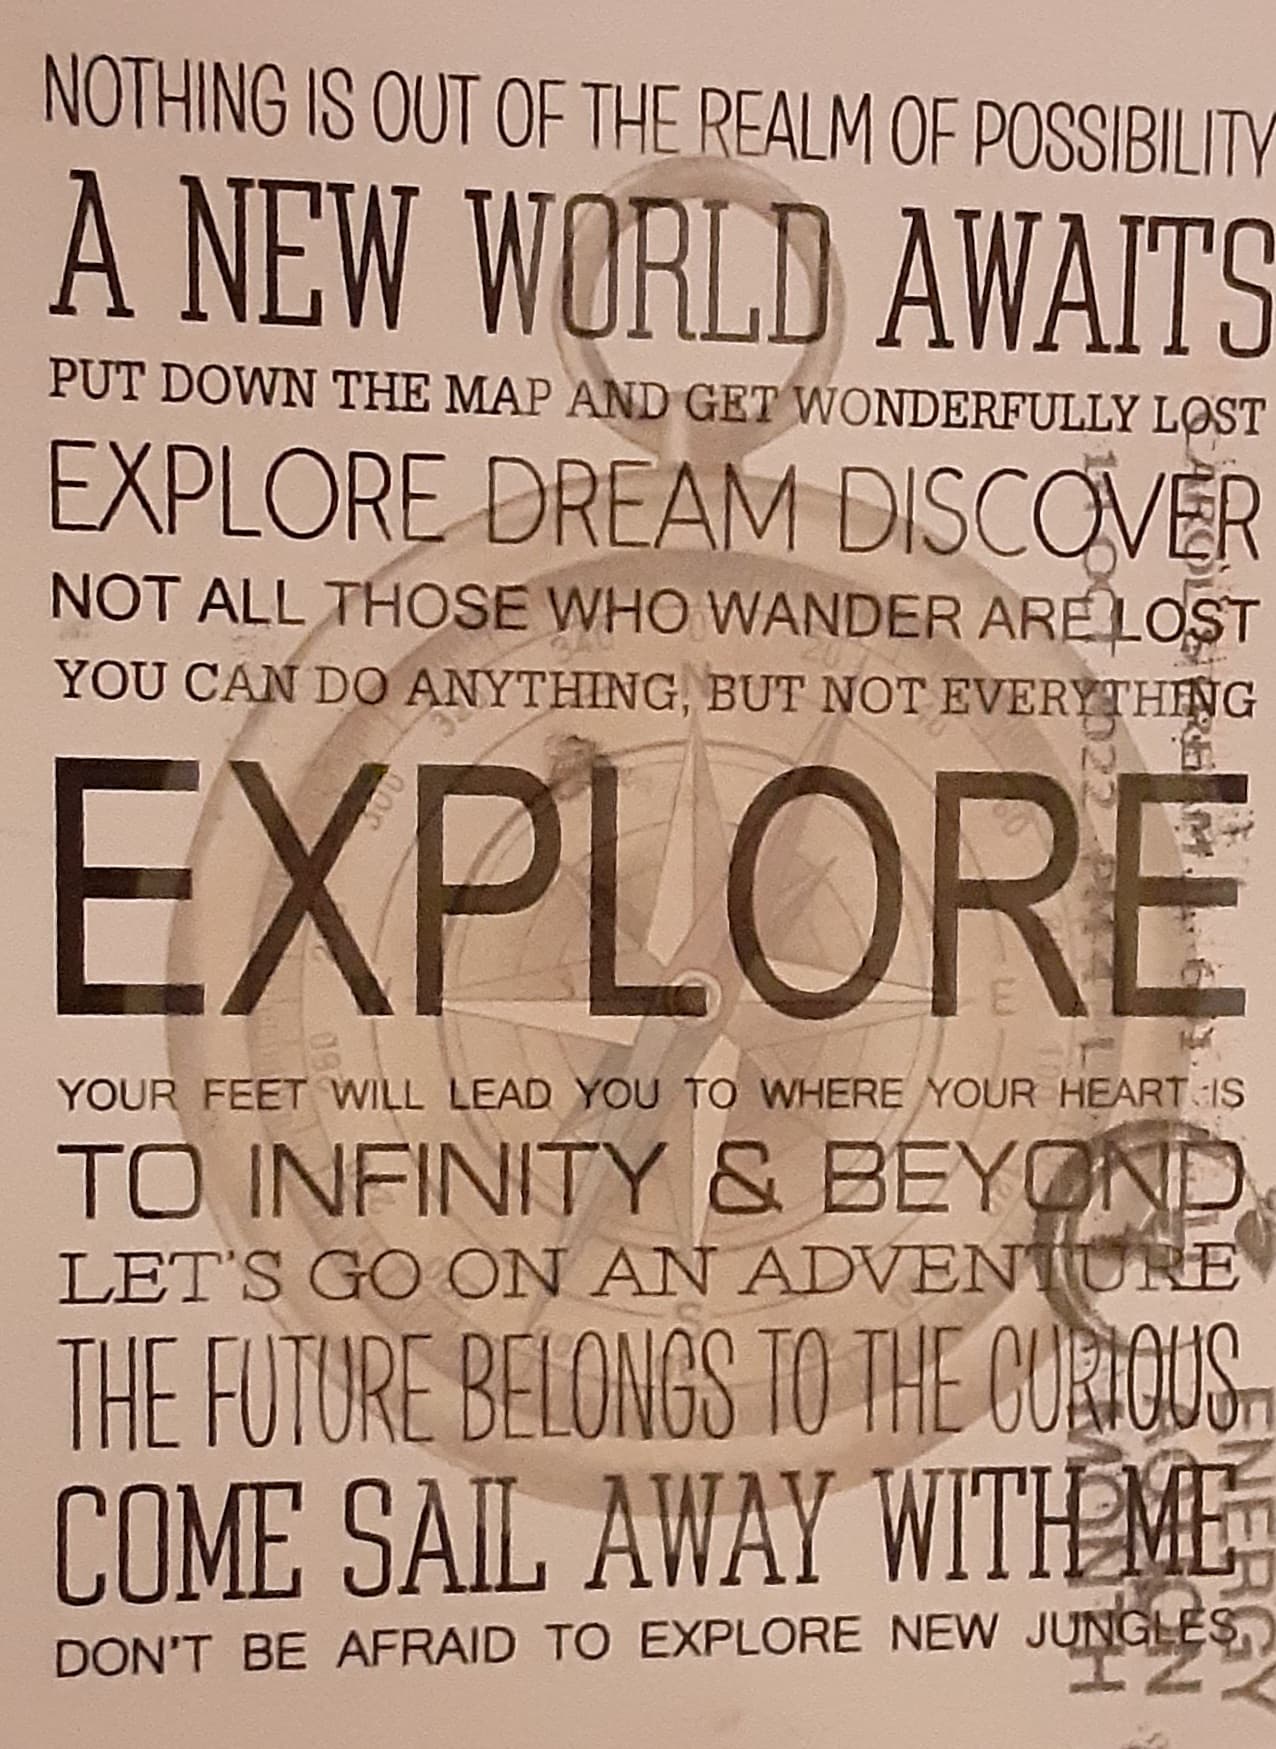 NOTHING IS OUT OF THE REALM OF POSSIBILITY
A NEW WORLD AWAITS
PUT DOWN THE MAP AND GET WONDERFULLY LOST
EXPLORE DREAM DISCOVER
NOT ALL THOSE WHO WANDER ARE LOST
YOU CAN DO ANYTHING, BUT NOT EVERYTHING
EXPLORE
YOUR FEET WILL LEAD YOU TO WHERE YOUR HEART IS
TO INFINITY & BEYOND
LET'S GO ON AN ADVENTURE
THE FUTURE BELONGS TO THE CURIOUS
COME SAIL AWAY WITH ME
DON'T BE AFRAID TO EXPLORE NEW JUNGLES
N
E
S
320
340
20
300
280
CAROL STREAM
2022 PM
ENERGY
ACTION
MONTH